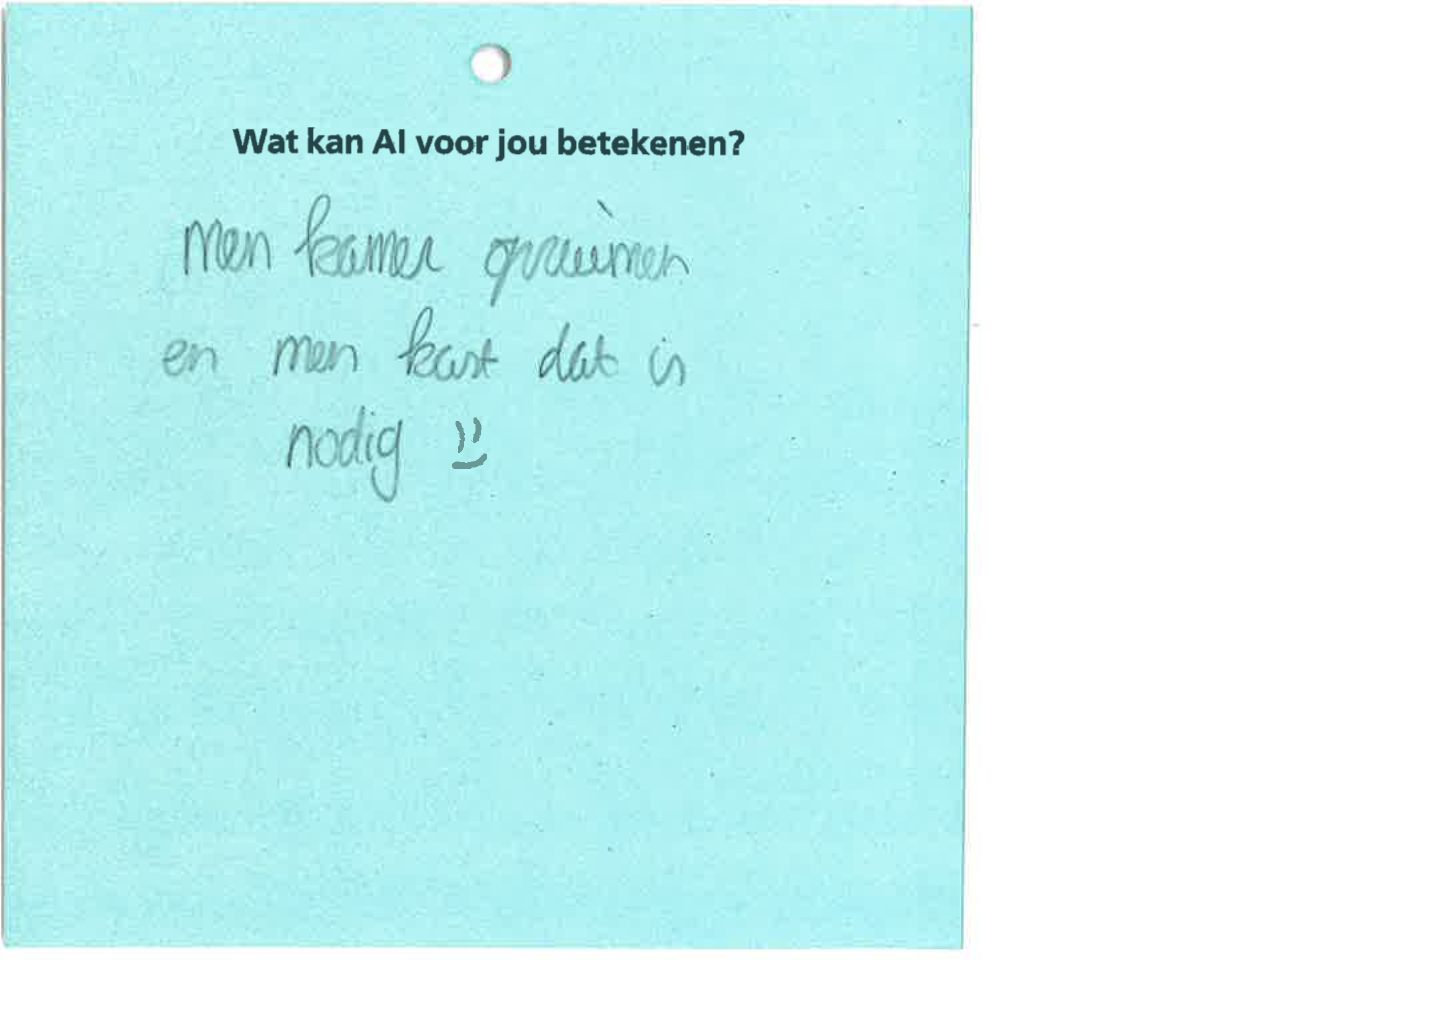 Wat kan AI voor jou betekenen?
men kamer opruimen
en men kast dat is
nodig